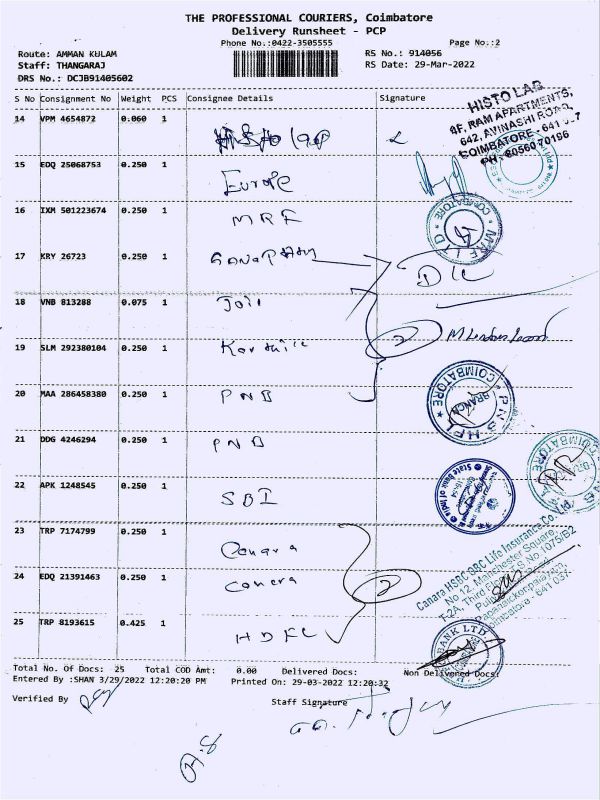 THE PROFESSIONAL COURIERS, Coimbatore
Delivery Runsheet - PCP
Phone No.:0422-3505555
Page No.:2
Route: AMMAN KULAM
RS No.: 914056
Staff: THANGARAJ
RS Date: 29-Mar-2022
DRS No.: DCJB91405602
S No Consignment No Weight PCS Consignee Details Signature
14 VPM 4654872 0.060 1
HISTO LAB
8F, RAM APARTMENTS,
642, AVINASHI ROAD,
COIMBATORE - 641
15 EDQ 25068753 0.250 1 Europe
16 IXM 501223674 0.250 1 MRF
COIMBATORE
MRF LTD
17 KRY 26723 0.250 1
18 VNB 813288 0.075 1
19 SLM 292380104 0.250 1
2
20 MAA 286458380 0.250 1 PNB
COIMBATORE
BRANCH
PNBHFL
21 DDG 4246294 0.250 1 PNB
COIMBATORE
22 APK 1248545 0.250 1 SBI
State Bank of
23 TRP 7174799 0.250 1 Canara
24 EDQ 21391463 0.250 1 Canera
2
Canara HSBC OBC Life Insurance Co.
No 12, Manchester Square,
T-2A, Third Floor, S No 1075/B2
Pappanaickenpalayam,
Coimbatore - 641 037
25 TRP 8193615 0.425 1 HDFC
BANK LTD
Total No. Of Docs: 25 Total COD Amt: 0.00 Delivered Docs: Non Delivered Docs:
Entered By :SHAN 3/29/2022 12:20:20 PM Printed On: 29-03-2022 12:20:32
Verified By
Staff Signature